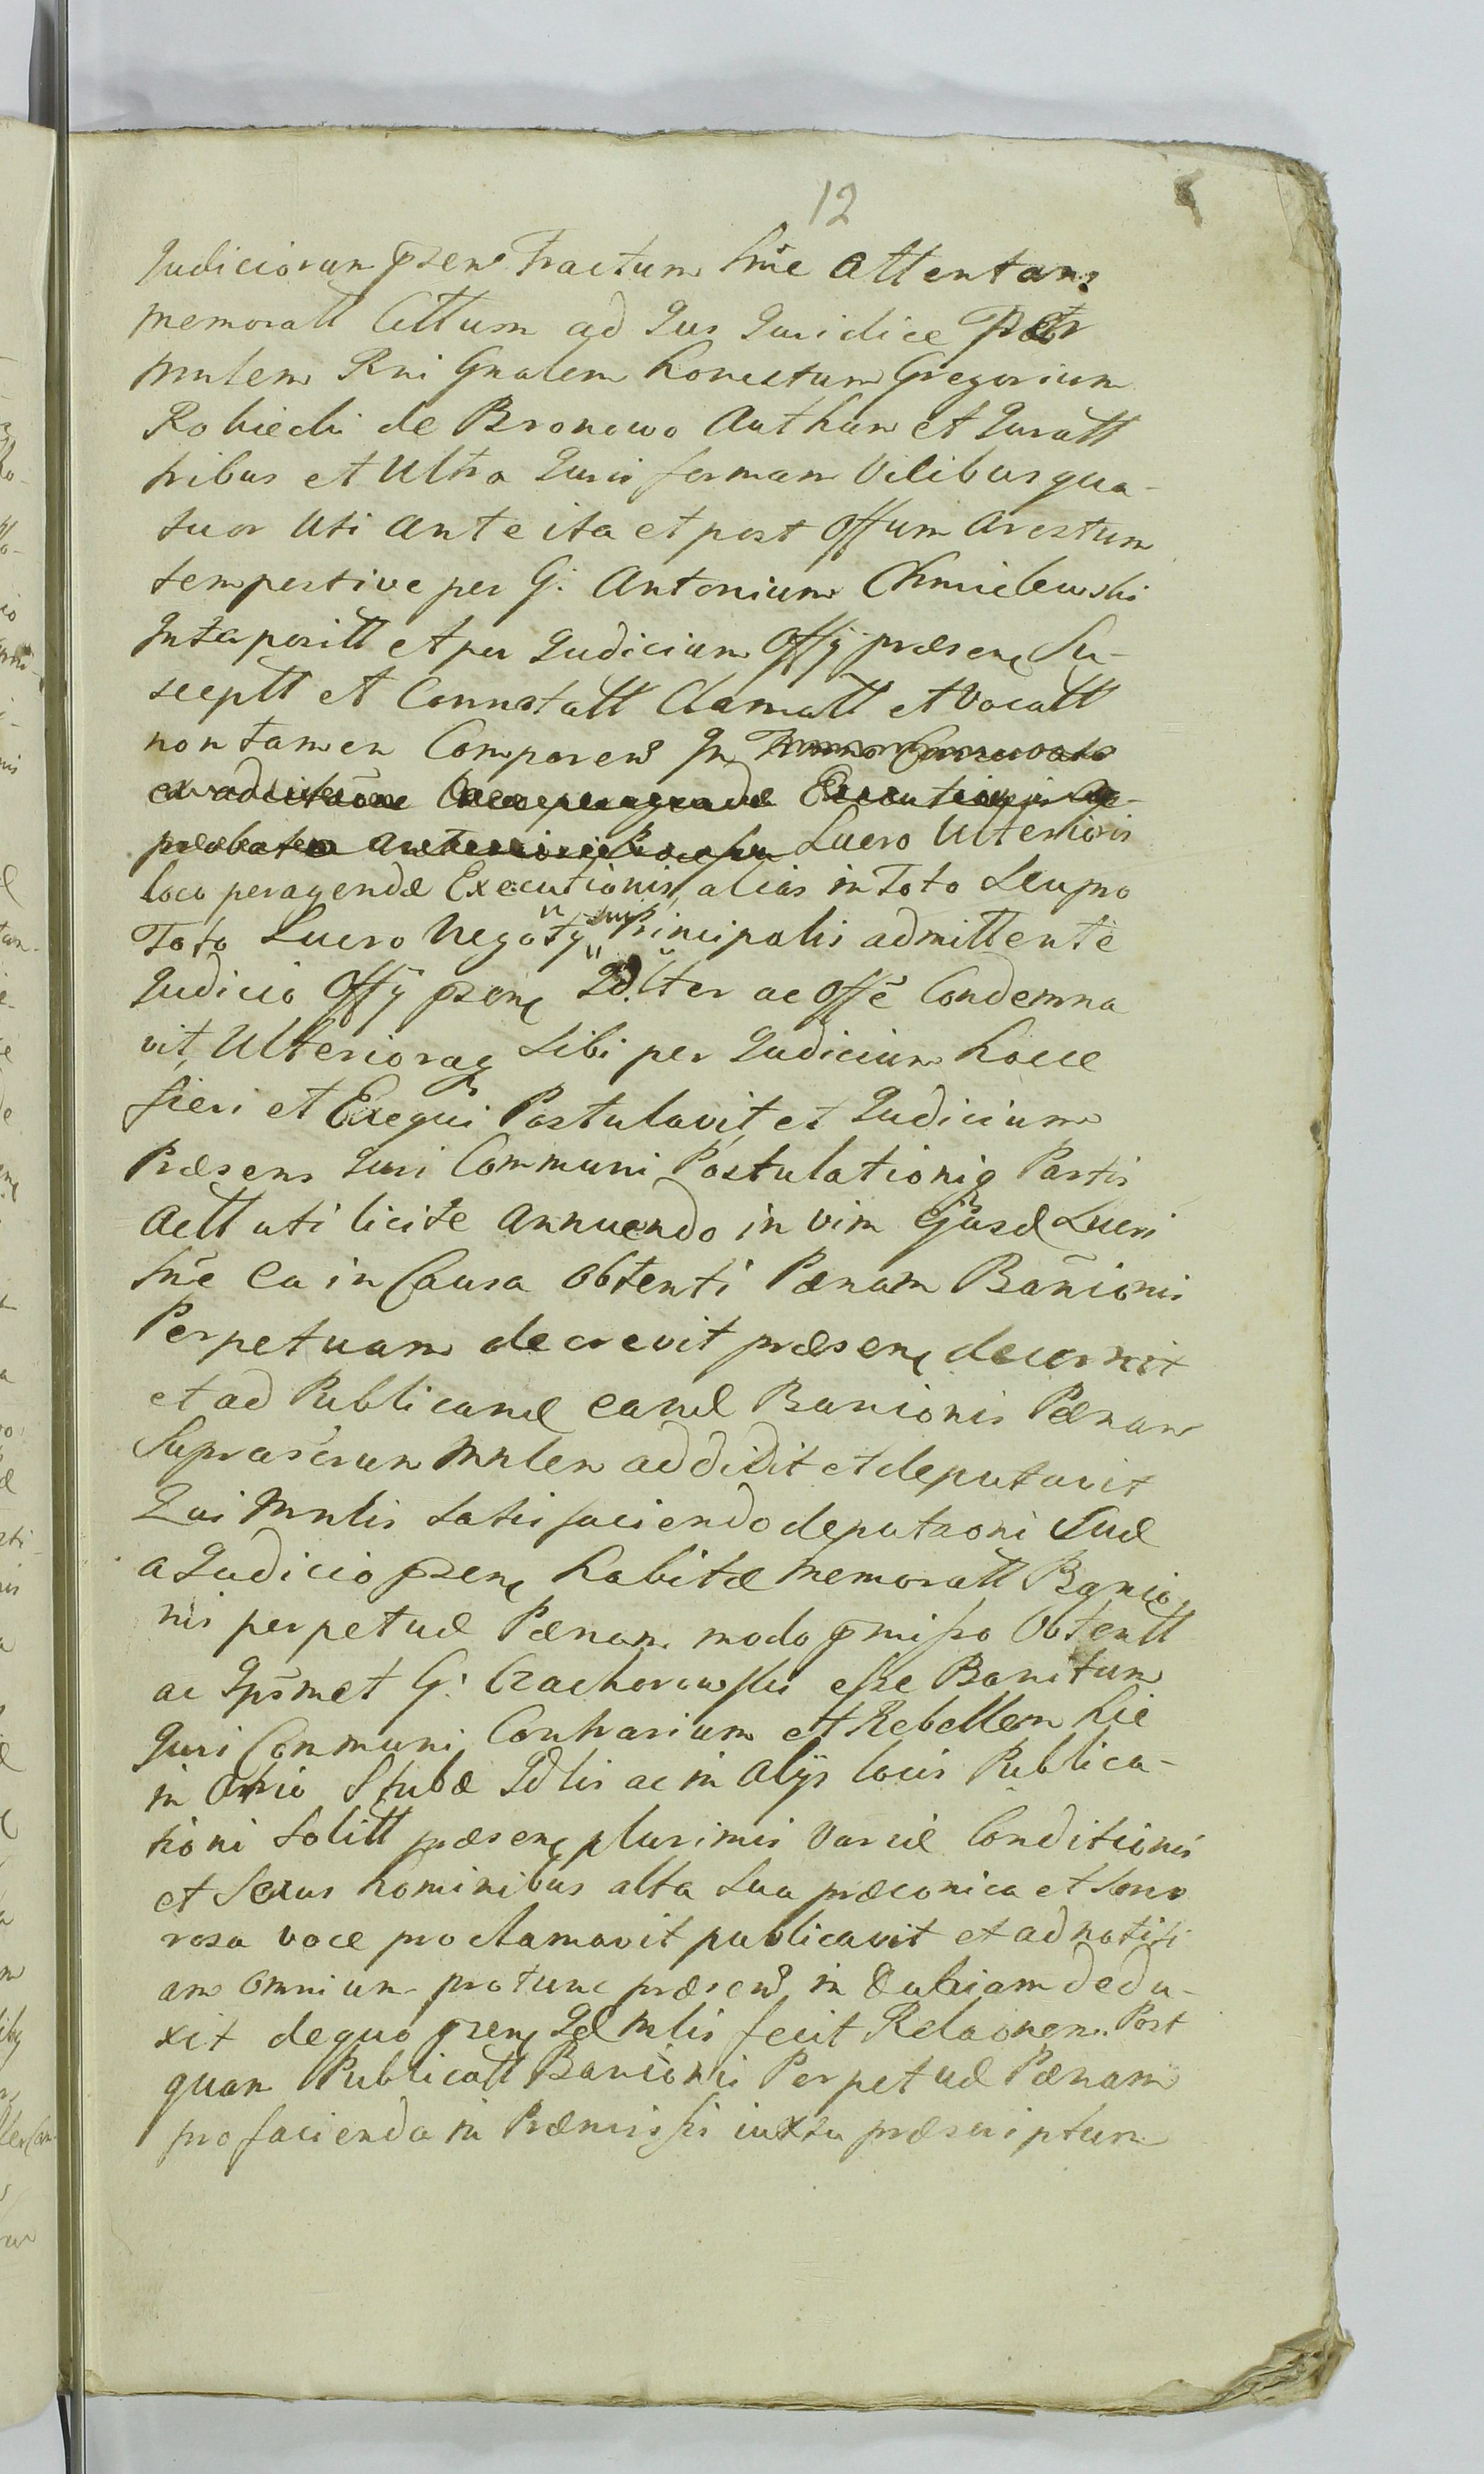 12
Judiciorum pzen Tractum hic Attentam
memoratt Cittum ad Jus Juridice Per
Mnlem Rni Gnalem honestum Gregorium
Robiecki de Bronowo Authen et Juratt
tribus et Ultra Juris formam Vilibus qua-
tuor Uti ante ita et post Offum Arestum
tempestive per G: Antonium Chmielewski
Interpositt et per Judicium Offÿ præsens Su-
sceptt et Connotatt Clamatt et Vocatt
non tamen Comparen In
Lucro Ulterioris
loco peragendæ Executionis, alias in Toto Seu pro
Toto Lucro Negotÿ Principalis admittente
Judicio Offÿ pzen Jdlter ac Offē Condemna
vit, Ulterioraq Sibi per Judicium hocce
fieri et Exequi Postulavit, et Judicium
Præsens Juri Communi Postulationiq Partis
Actt uti licite Annuendo in vim Ejusd Lucri
hīc Ea in Causa Obtenti Pænam Banionis
Perpetuam decrevit præsenq decernit
et ad Publicand eand Banionis Pænam
Suprascrum Mnlem addidit et deputavit
Qui Mnlis Satisfaciendo deputaoni Suæ
a Judicio pzen habitæ memoratt Banio
nis perpetuæ Pænam modo pmisso Obtentt
ac Ipsmet G: Czachorowski esse Banitum
Juri Communi Contrarium et Rebellem hic
in Atrio Stubæ Jdlis ac in Alÿs locis Publica-
tioni Solitt præsenq plurimis Variæ Conditionis
et Sexus hominibus alta Sua præconica et Sono
rosa voce proclamavit publicavit et ad notiti
am Omnium protunc præsen in dedu-
xit de quo pzenq Id Mlis fecit Relaonem. Post
quam Publicatt Banionis Perpetuæ Pænam
pro facienda in Præmissis iuxta præscriptum